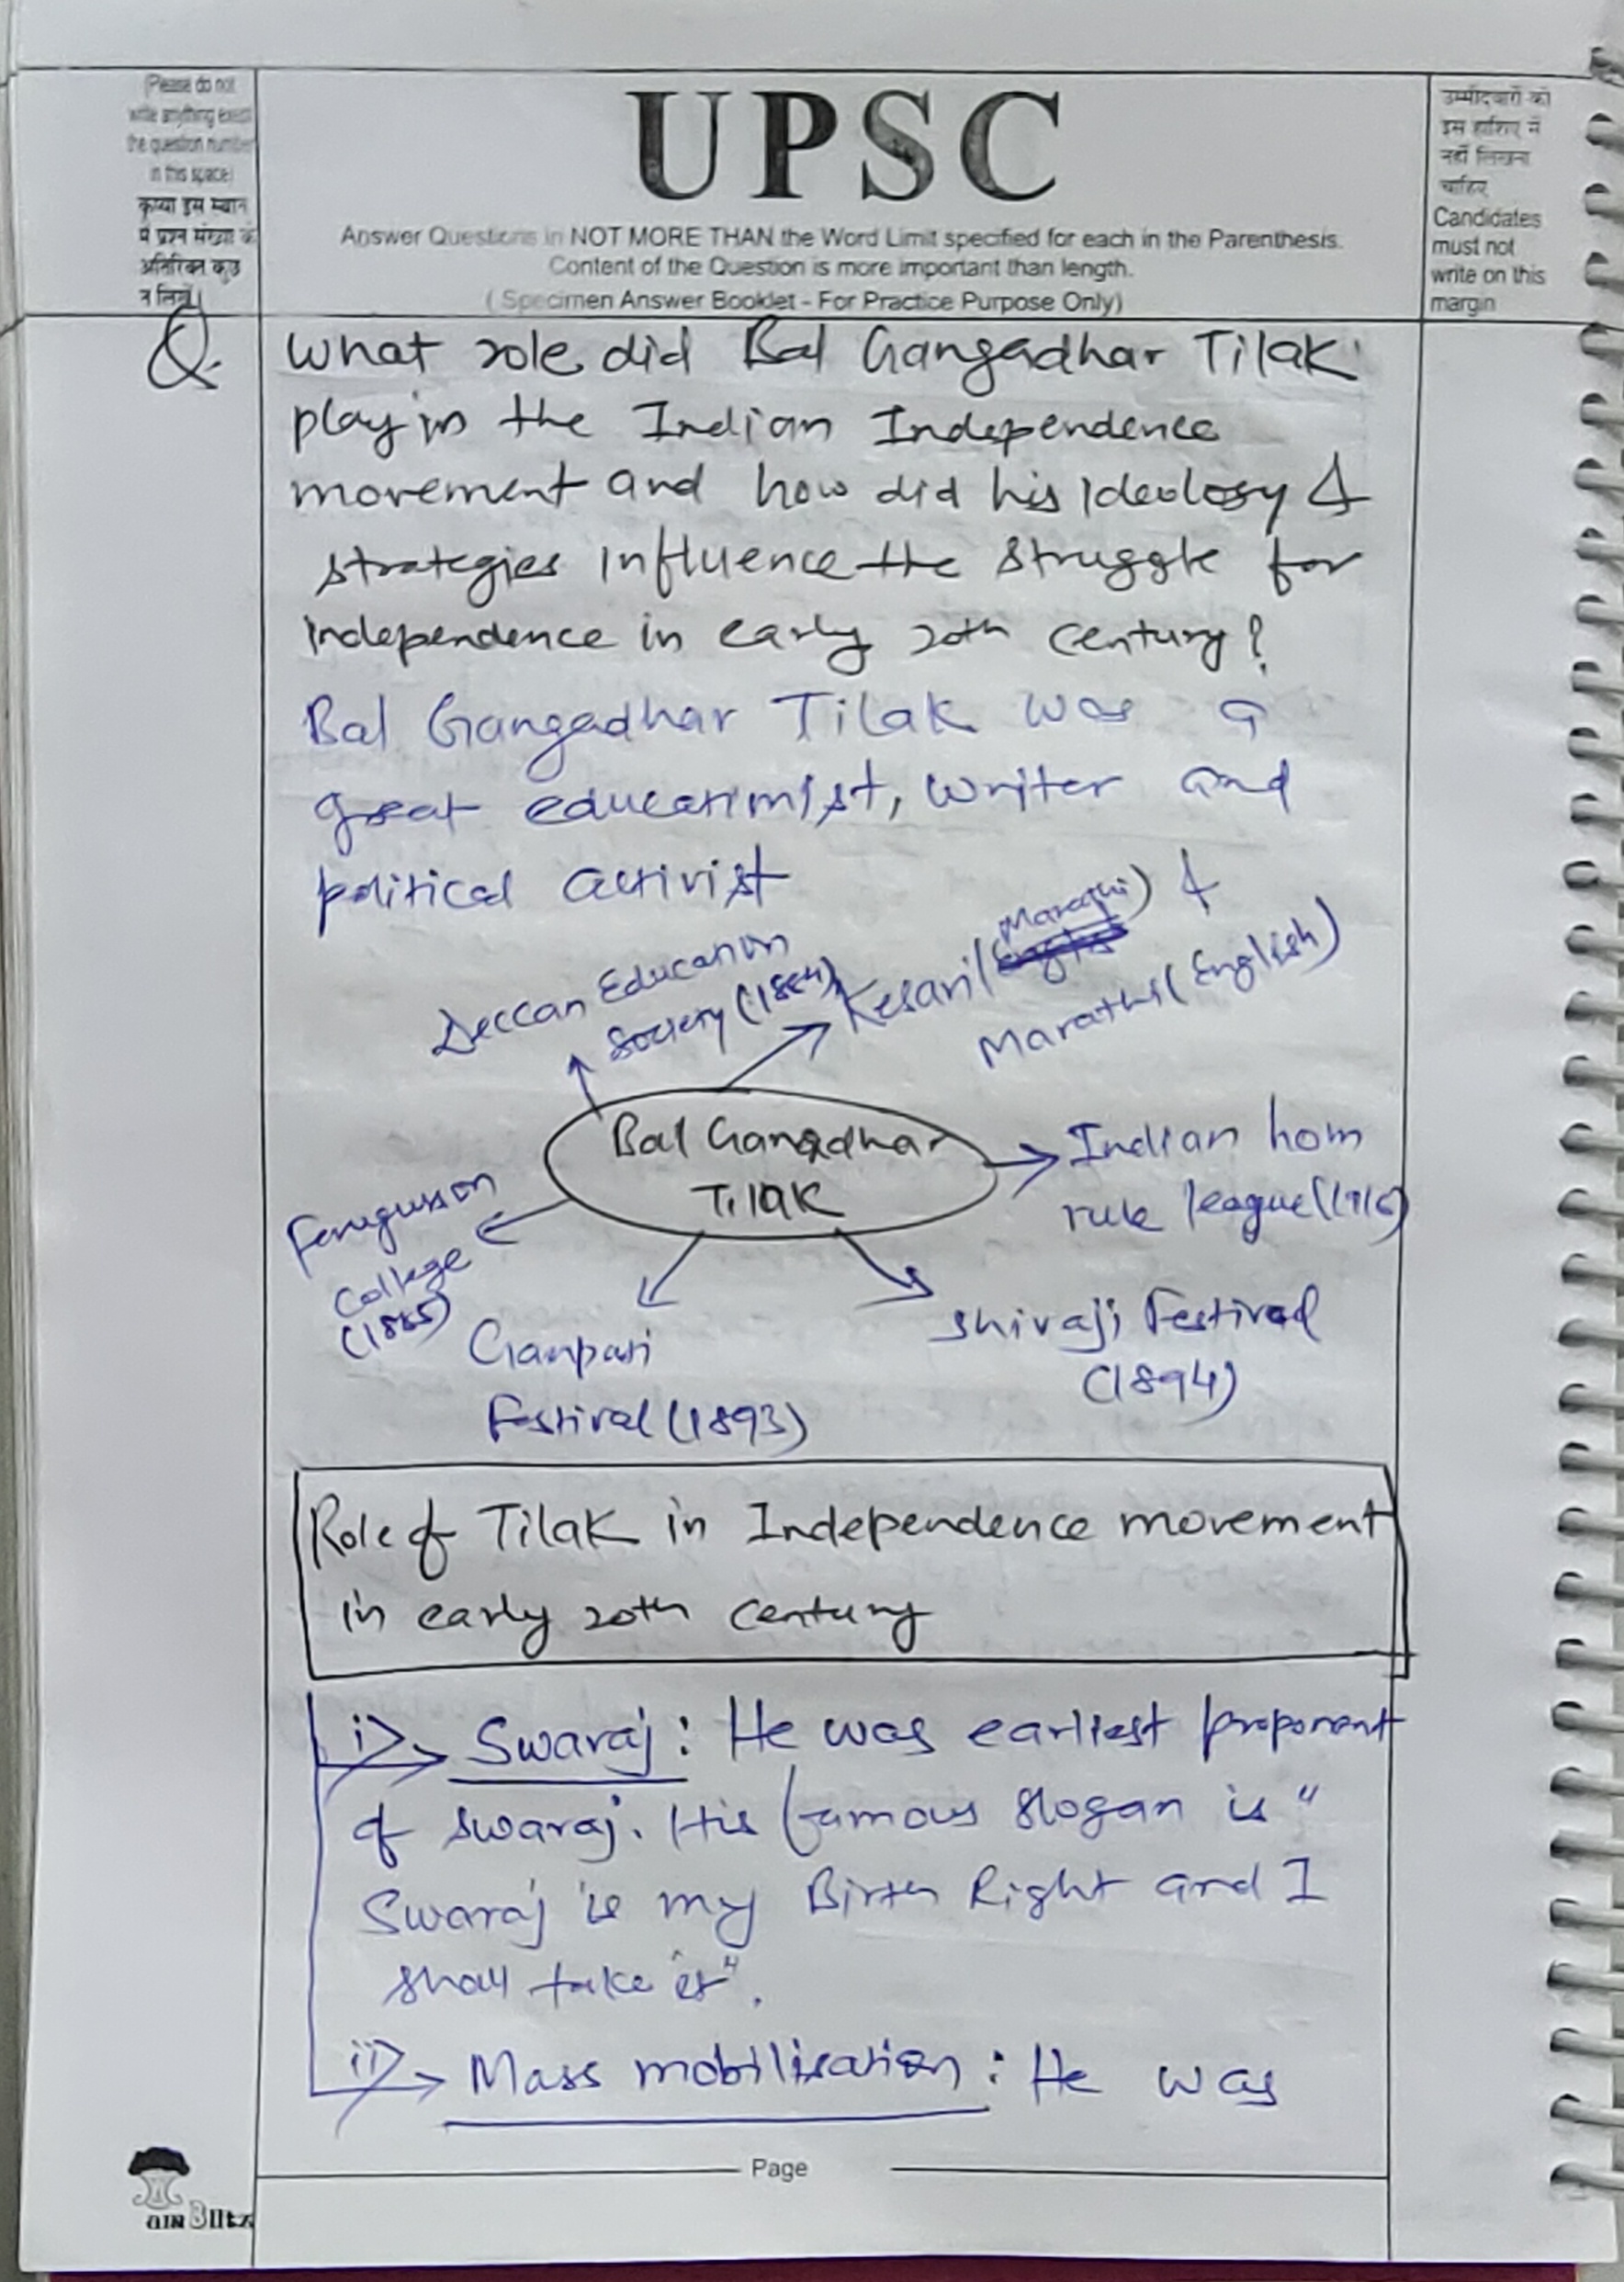 (Please do not
write anything except
the question number
in this space)
कृपया इस स्थान
में प्रश्न संख्या के
अतिरिक्त कुछ
न लिखें।
UPSC
Answer Questions in NOT MORE THAN the Word Limit specified for each in the Parenthesis.
Content of the Question is more important than length.
( Specimen Answer Booklet - For Practice Purpose Only)
उम्मीदवारों को
इस हाशिए में
नहीं लिखना
चाहिए
Candidates
must not
write on this
margin
Q. What role did Bal Gangadhar Tilak
play in the Indian Independence
movement and how did his Ideology &
strategies influence the struggle for
Independence in early 20th century?
Bal Gangadhar Tilak was a
great educationist, writer and
political activist
Deccan Education
Society (1884)
Kesari (Marathi) &
Maratha (English)
Bal Gangadhar
Tilak
Indian hom
rule league (1916)
Ferugusson
College
(1885)
Ganpati
Festival (1893)
Shivaji Festival
(1894)
Role of Tilak in Independence movement
in early 20th century
i) Swaraj : He was earliest proponent
of swaraj. His famous slogan is "
Swaraj is my Birth Right and I
shall take it".
ii) Mass mobilisation : He was
Page
aim Blitz